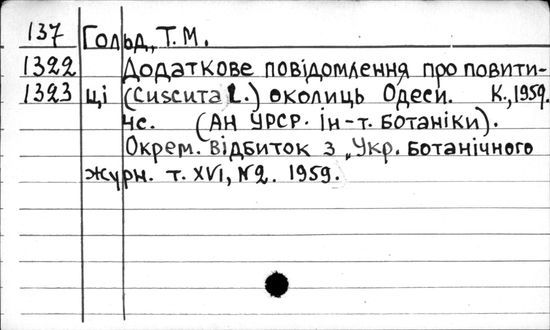 137 Гольд, Т.М.
1322 Додаткове повідомлення про повити-
1323 ці (Cuscuta L.) околиць Одеси. К., 1959.
4с. (АН УРСР. Ін-т. ботаніки).
Окрем. відбиток з „Укр. ботанічного
журн. т. XVI, №2. 1959.